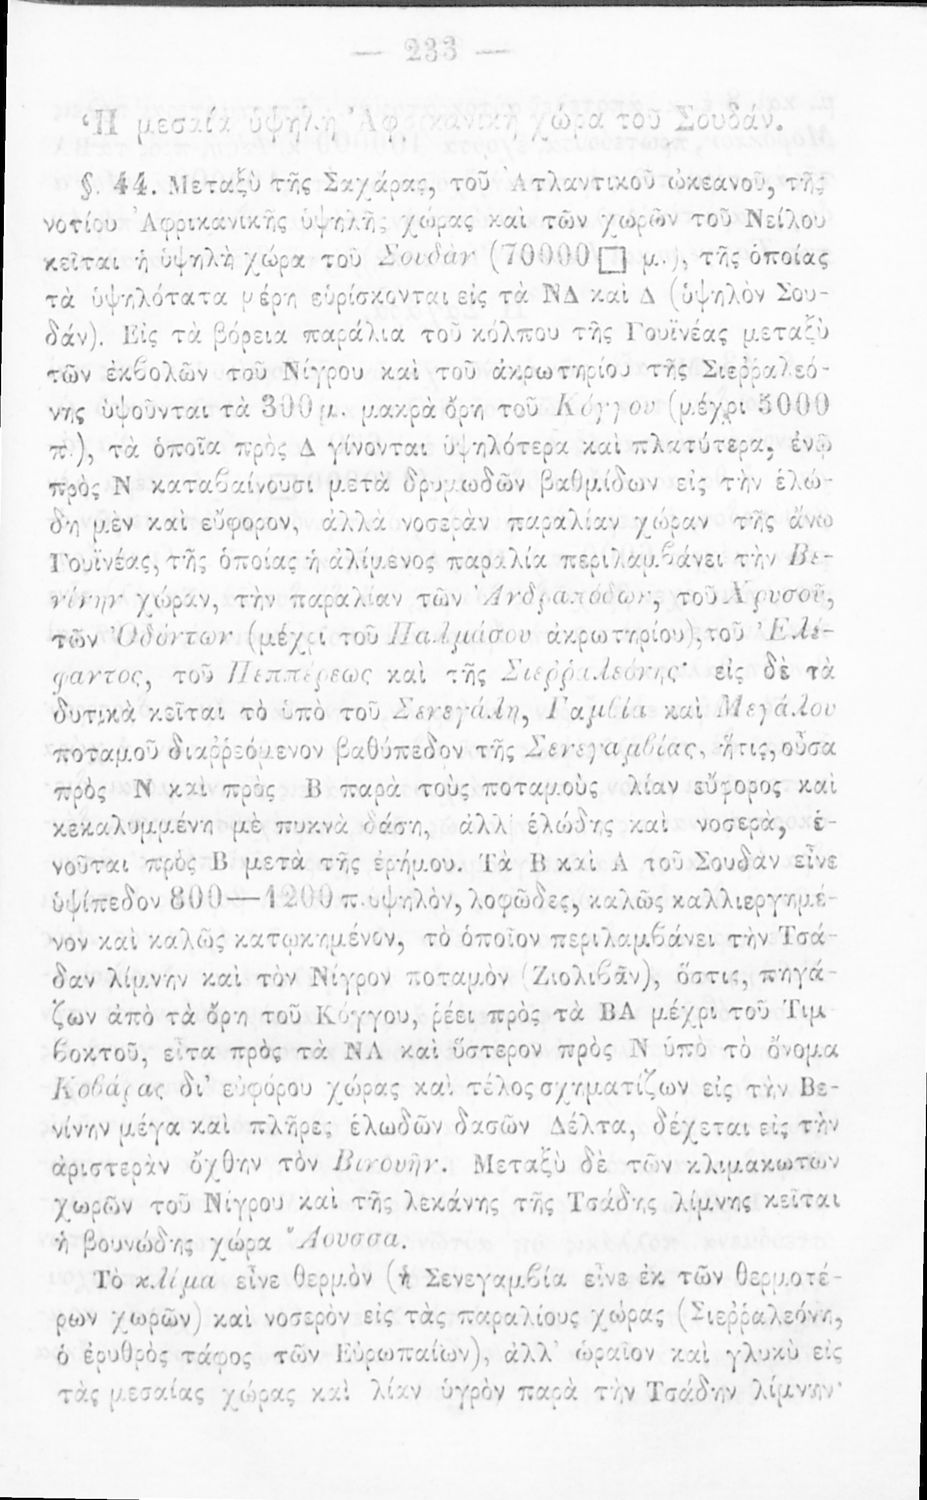 — 233 —
Ἡ μεσαία ὑψηλὴ Ἀφρικανικὴ χώρα τοῦ Σουδάν.
§. 44. Μεταξὺ τῆς Σαχάρας, τοῦ Ἀτλαντικοῦ ὠκεανοῦ, τῆς
νοτίου Ἀφρικανικῆς ὑψηλῆς χώρας καὶ τῶν χωρῶν τοῦ Νείλου
κεῖται ἡ ὑψηλὴ χώρα τοῦ Σουδὰν (70000 □ μ.), τῆς ὁποίας
τὰ ὑψηλότατα μέρη εὑρίσκονται εἰς τὰ ΝΔ καὶ Δ (ὑψηλὸν Σου-
δάν). Εἰς τὰ βόρεια παράλια τοῦ κόλπου τῆς Γουϊνέας μεταξὺ
τῶν ἐκβολῶν τοῦ Νίγρου καὶ τοῦ ἀκρωτηρίου τῆς Σιεῤῥαλεό-
νης ὑψοῦνται τὰ 300 μ. μακρὰ ὄρη τοῦ Κόγγου (μέχρι 5000
π.), τὰ ὁποῖα πρὸς Δ γίνονται ὑψηλότερα καὶ πλατύτερα, ἐνῷ
πρὸς Ν καταβαίνουσι μετὰ δρυμωδῶν βαθμίδων εἰς τὴν ἑλώ-
δη μὲν καὶ εὔφορον, ἀλλὰ νοσερὰν παραλίαν χώραν τῆς ἄνω
Γουϊνέας, τῆς ὁποίας ἡ ἀλίμενος παραλία περιλαμβάνει τὴν Βε-
νίνην χώραν, τὴν παραλίαν τῶν Ἀνδραπόδων, τοῦ Χρυσοῦ,
τῶν Ὀδόντων (μέχρι τοῦ Παλμάσου ἀκρωτηρίου), τοῦ Ἐλέ-
φαντος, τοῦ Πεππέρεως καὶ τῆς Σιεῤῥαλεόνης· εἰς δὲ τὰ
δυτικὰ κεῖται τὸ ὑπὸ τοῦ Σενεγάλη, Γαμβία καὶ Μεγάλου
ποταμοῦ διαῤῥεόμενον βαθύπεδον τῆς Σενεγαμβίας, ἥτις, οὖσα
πρὸς Ν καὶ πρὸς Β παρὰ τοὺς ποταμοὺς λίαν εὔφορος καὶ
κεκαλυμμένη μὲ πυκνὰ δάση, ἀλλ' ἑλώδης καὶ νοσερά, ἑ-
νοῦται πρὸς Β μετὰ τῆς ἐρήμου. Τὰ Β καὶ Α τοῦ Σουδὰν εἶνε
ὑψίπεδον 800—1200 π. ὑψηλὸν, λοφῶδες, καλῶς καλλιεργημέ-
νον καὶ καλῶς κατῳκημένον, τὸ ὁποῖον περιλαμβάνει τὴν Τσά-
δαν λίμνην καὶ τὸν Νίγρον ποταμὸν (Ζιολιβᾶν), ὅστις, πηγά-
ζων ἀπὸ τὰ ὄρη τοῦ Κόγγου, ῥέει πρὸς τὰ ΒΑ μέχρι τοῦ Τιμ
βοκτοῦ, εἶτα πρὸς τὰ ΝΑ καὶ ὕστερον πρὸς Ν ὑπὸ τὸ ὄνομα
Κοβάρας δι' εὐφόρου χώρας καὶ τέλος σχηματίζων εἰς τὴν Βε-
νίνην μέγα καὶ πλῆρες ἑλωδῶν δασῶν Δέλτα, δέχεται εἰς τὴν
ἀριστερὰν ὄχθην τὸν Βινουὴν. Μεταξὺ δὲ τῶν κλιμακωτῶν
χωρῶν τοῦ Νίγρου καὶ τῆς λεκάνης τῆς Τσάδης λίμνης κεῖται
ἡ βουνώδης χώρα Ἄουσσα.
Τὸ κλίμα εἶνε θερμὸν (ἡ Σενεγαμβία εἶνε ἐκ τῶν θερμοτέ-
ρων χωρῶν) καὶ νοσερὸν εἰς τὰς παραλίους χώρας (Σιεῤῥαλεόνη,
ὁ ἐρυθρὸς τάφος τῶν Εὐρωπαίων), ἀλλ' ὡραῖον καὶ γλυκὺ εἰς
τὰς μεσαίας χώρας καὶ λίαν ὑγρὸν παρὰ τὴν Τσάδην λίμνην·